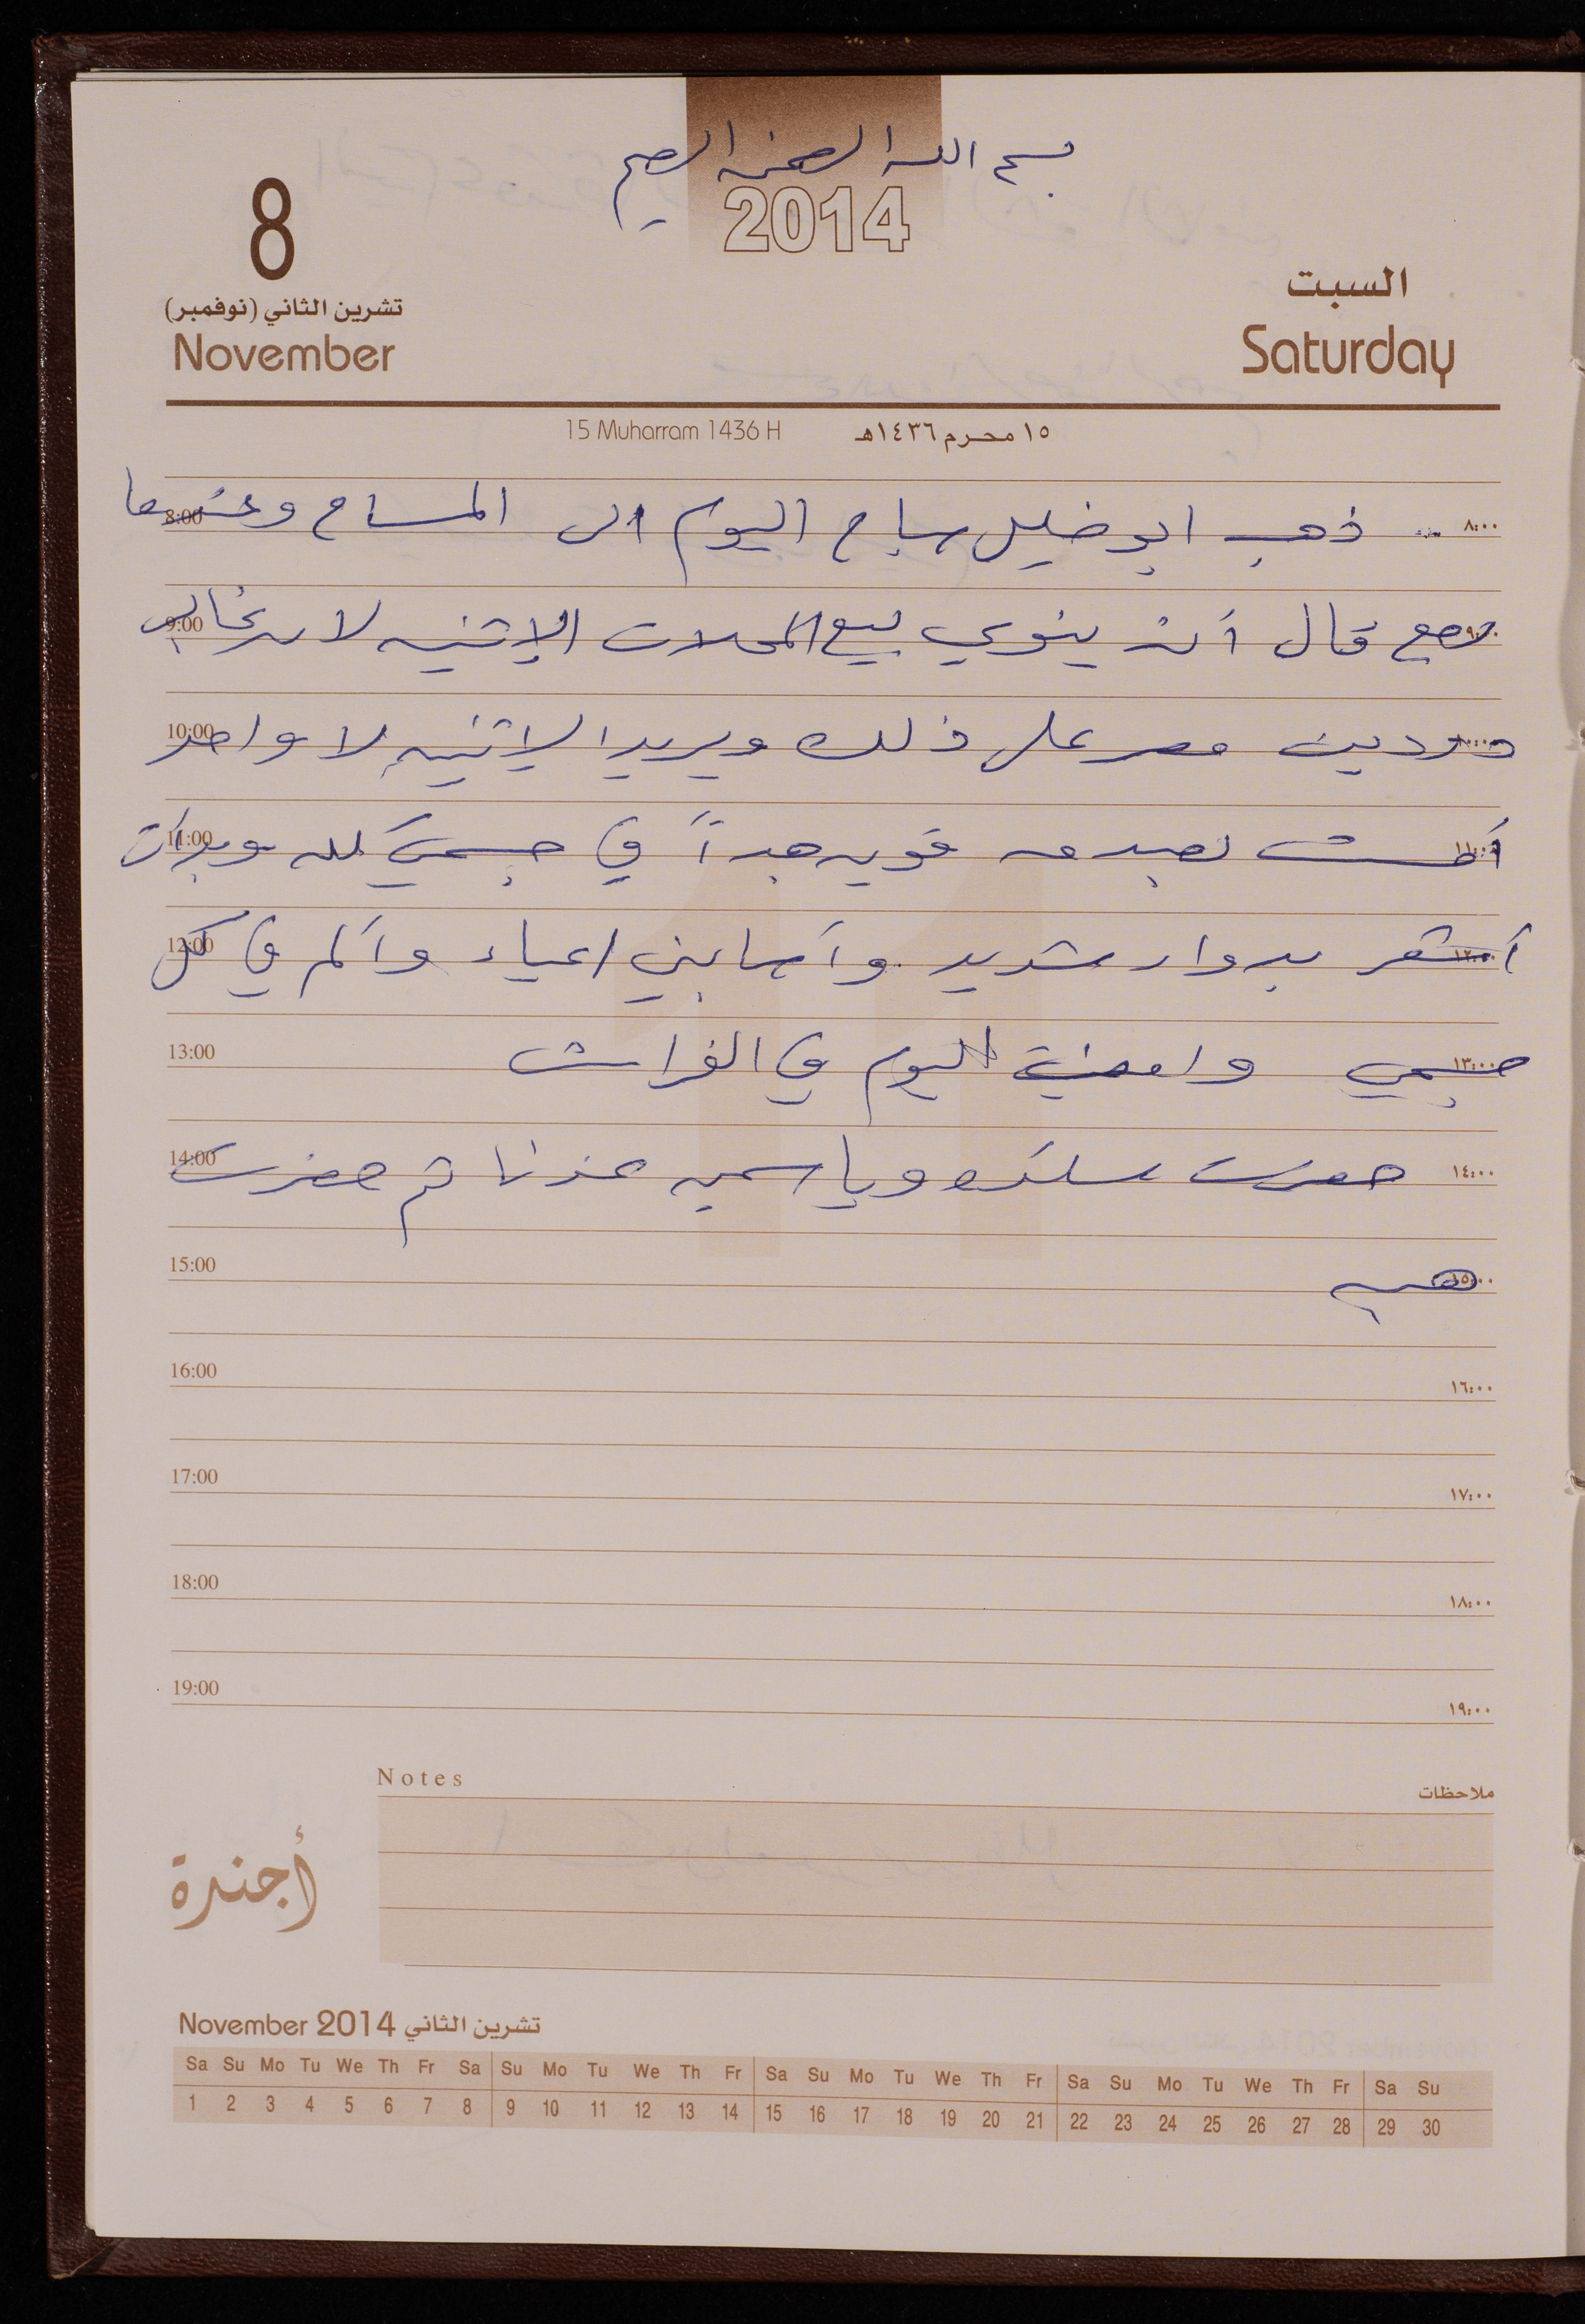 بسم الله الرحمن الرحيم
2014
8
تشرين الثاني (نوفمبر)
November
السبت
Saturday
15 Muharram 1436 H
١٥ محرم ١٤٣٦هـ
٨:٠٠ ذهب ابو خليل صباح اليوم الى المساح وعندما 8:00
٩:٠٠ رجع قال أنه ينوي بيع المحلات الإثنين لان 9:00
١٠:٠٠ مصر على ذلك ويريد الإثنين لا واحد 10:00
١١:٠٠ أحسست بصدمه قويه جداً في جسمي كله وبدأت 11:00
١٢:٠٠ أشعر بدوار شديد وأصابني اعياء وألم في كل 12:00
١٣:٠٠ جسمي وامضيت اليوم في الفراش 13:00
١٤:٠٠ حضرت سلتده وياسمين عندنا ثم حضرت 14:00
١٥:٠٠ هبه 15:00
١٦:٠٠ 16:00
١٧:٠٠ 17:00
١٨:٠٠ 18:00
١٩:٠٠ 19:00
Notes ملاحظات
أجندة
November 2014 تشرين الثاني
Sa Su Mo Tu We Th Fr Sa Su Mo Tu We Th Fr Sa Su Mo Tu We Th Fr Sa Su Mo Tu We Th Fr Sa Su
1 2 3 4 5 6 7 8 9 10 11 12 13 14 15 16 17 18 19 20 21 22 23 24 25 26 27 28 29 30